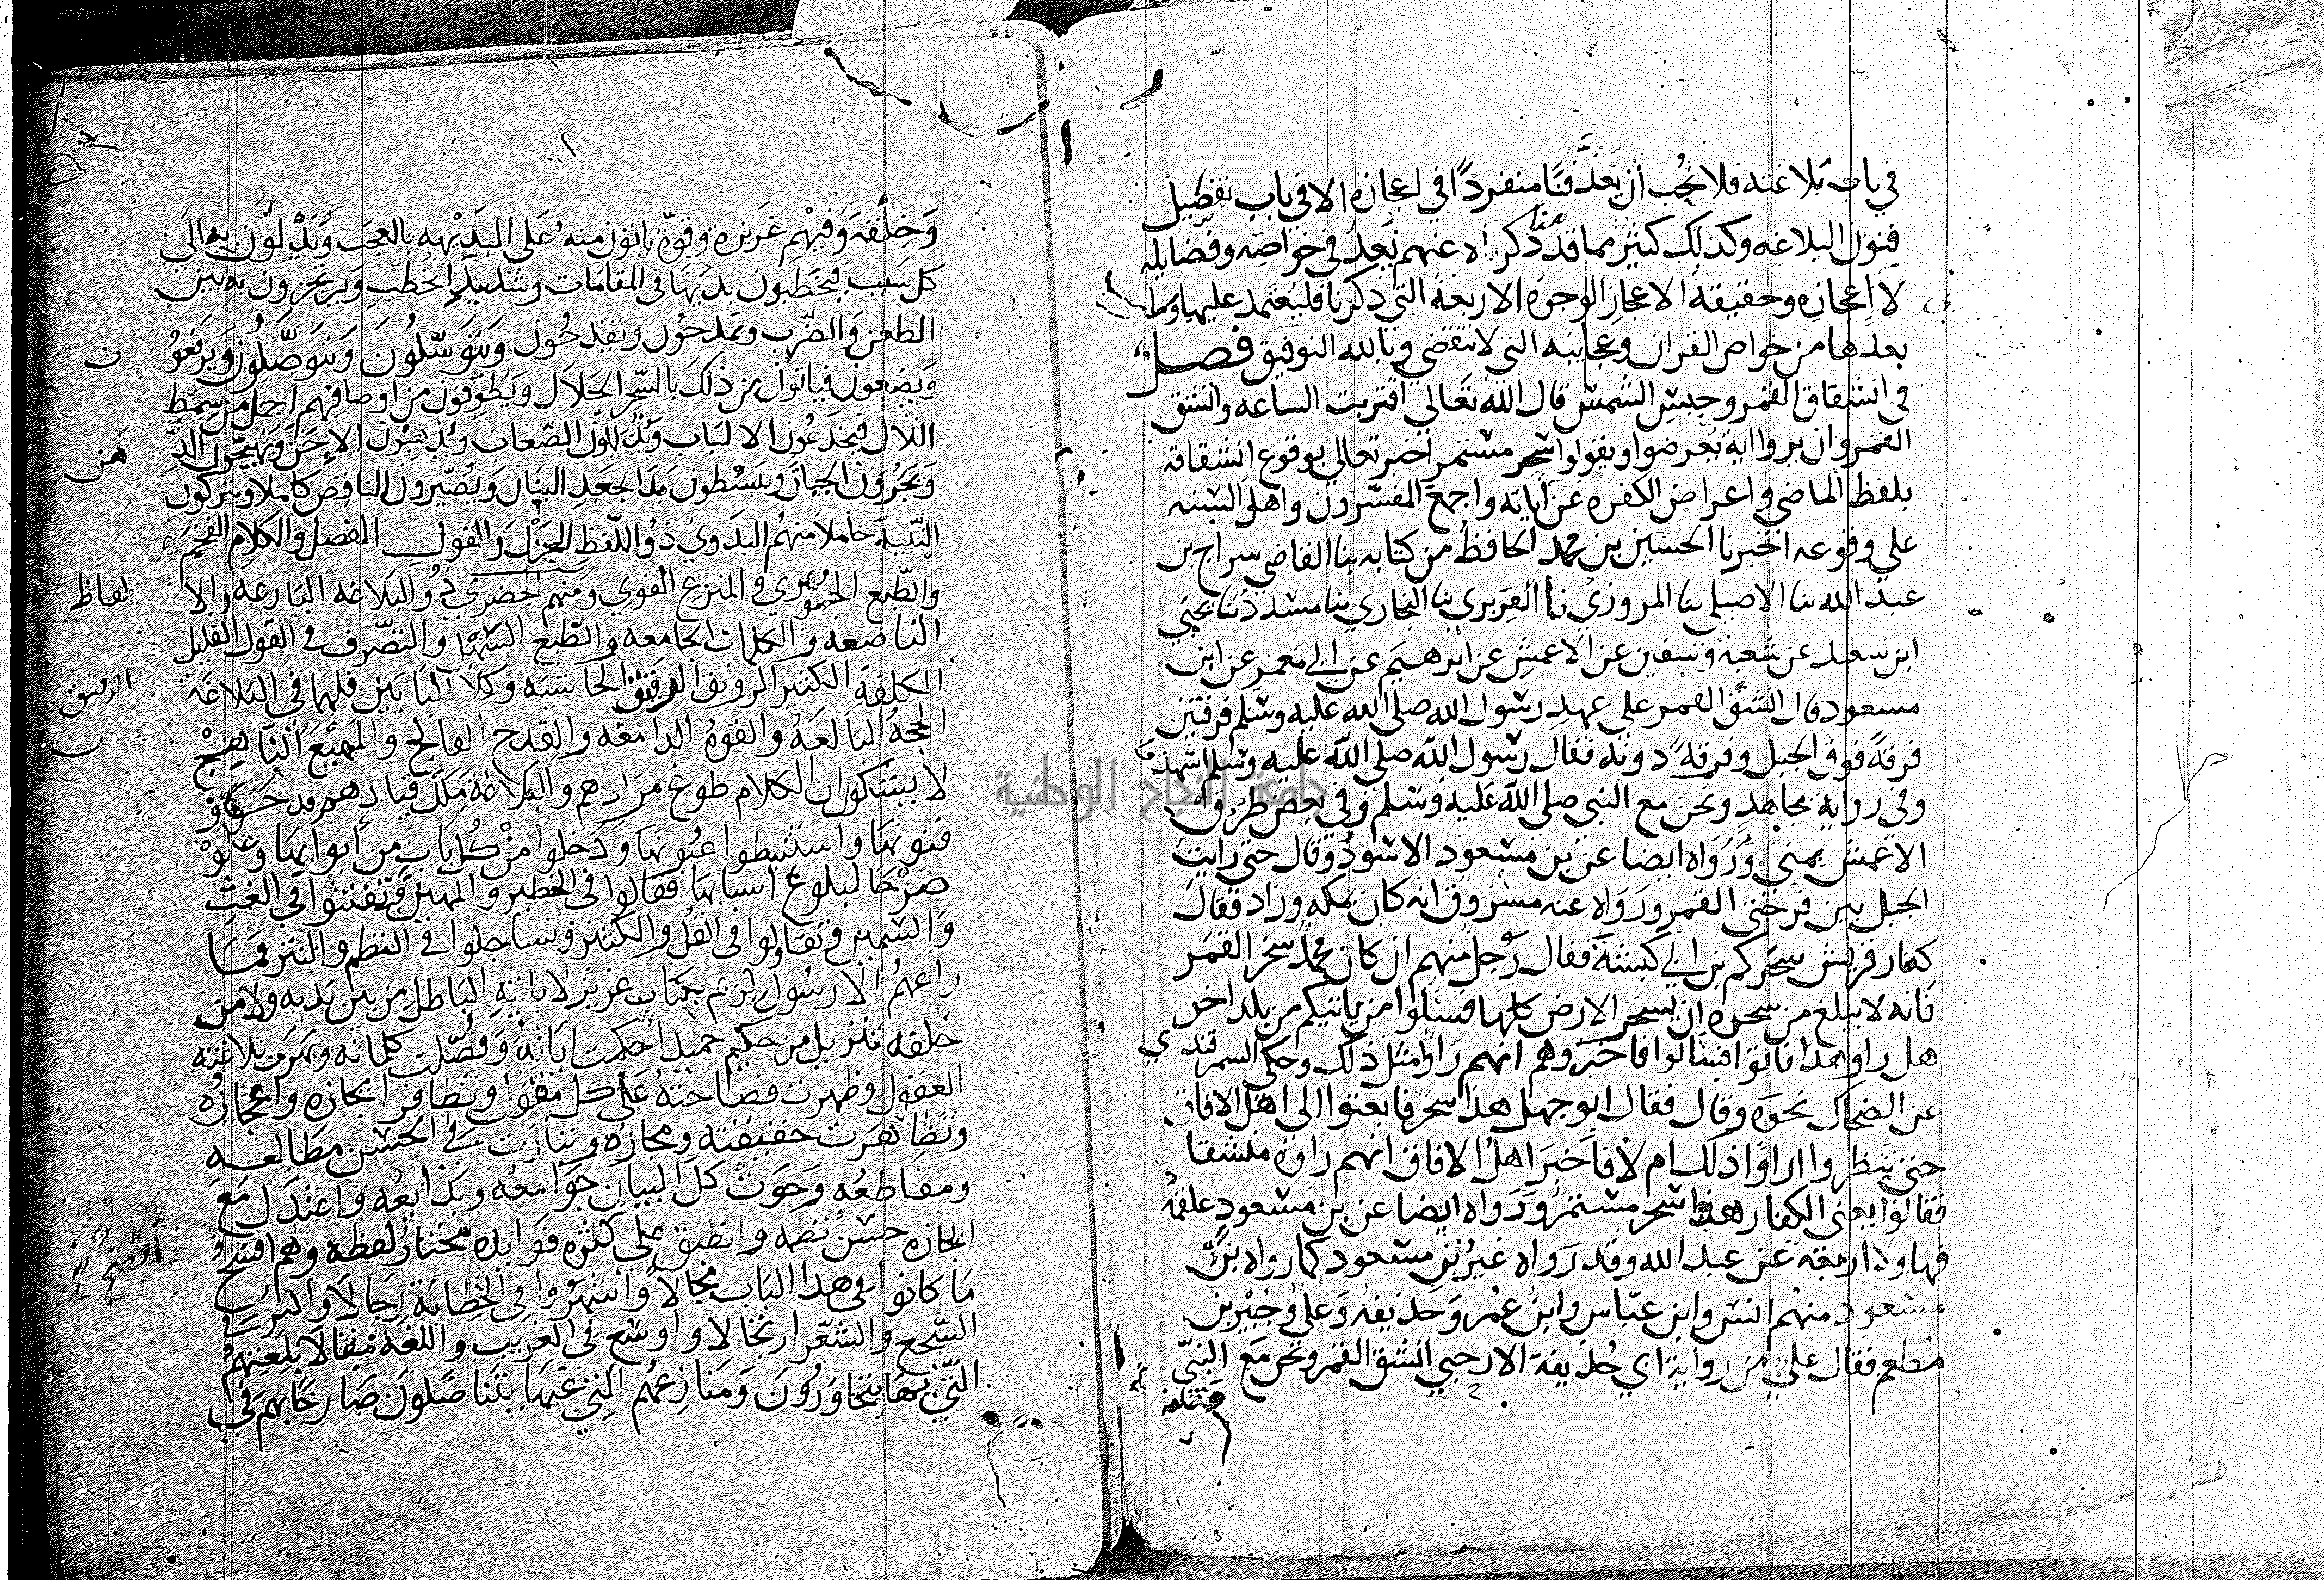 في باب بلاغته فلا يجب أن يعدّ فنّا منفردًا في اعجازه الا في باب تفصيل
فنون البلاغه وكذلك كثير مما قدمنا ذكراه عنهم يعد في خواصه وفضايله
لا اعجازه وحقيقة الاعجاز الوجوه الاربعة التي ذكرنا فليعتمد عليها وما
بعدها من خواص القران وعجايبه التي لا تنقضي وبالله التوفيق فصل
في انشقاق القمر وحبس الشمس قال الله تعالي اقتربت الساعه وانشق
القمر وان يروا اية يعرضوا ويقولوا سحر مستمر اخبر تعالي بوقوع انشقاقه
بلفظ الماضي واعراض الكفره عن اياته واجمع المفسرون واهل السنه
علي وقوعه اخبرنا الحسين بن محمد الحافظ من كتابه نا القاضي سراج بن
عبد الله نا الاصيلي نا المروزي نا الفربري نا البخاري نا مسدد نا يحيي
ابن سعيد عن شعبة وسفين عن الاعمش عن ابرهيم عن ابي معمر عن ابن
مسعود قال انشق القمر علي عهد رسول الله صلي الله عليه وسلم فرقتين
فرقة فوق الجبل وفرقة دونه فقال رسول الله صلي الله عليه وسلم اشهدوا
وفي رواية مجاهد ونحن مع النبي صلي الله عليه وسلم وفي بعض طرق
الاعمش بمني ورواه ايضا عن بن مسعود الاسود وقال حتي رايت
الجبل بين فرجتي القمر ورواه عنه مسروق انه كان بمكه وزاد فقال
كفار قريش سحركم بن ابي كبشة فقال رجل منهم ان كان محمد سحر القمر
فانه لا يبلغ من سحره ان يسحر الارض كلها فسئلوا من ياتيكم من بلد اخر
هل راو هذا فاتوا فسالوا فاخبروهم انهم راوا مثل ذلك وحكي السمرقندي
عن الضحاك نحوه وقال فقال ابو جهل هذا سحر فابعثوا الي اهل الافاق
حتي ينظروا اراوا ذلك ام لا فاخبر اهل الافاق انهم راوه منشقا
فقالوا يعني الكفار هذا سحر مستمر ورواه ايضا عن بن مسعود علقمة
فهاولا اربعة عن عبد الله وقد رواه غير بن مسعود كما رواه بن
مسعود منهم انس وابن عباس وابن عمر وحذيفة وعلي وجبير بن
مطعم فقال علي من رواية ابي حذيفة الارحبي انشق القمر ونحن مع النبي
وخلقة وفيهم غريزة وقوة ياتون منه علي البديهه بالعجب ويدلون به الي
كل سبب فيخطبون بديها في المقامات وشديد الخطب ويرتجزون به بين
الطعن والضرب ويمدحون ويقدحون ويتوسلون ويتوصلون ويرفعو
ن
ويضعون فياتون من ذلك بالسحر الحلال ويطوقون من اوصافهم اجمل من سمط
اللال فيخدعون الالباب ويذللون الصعاب ويذهبون الإحن ويهيجون الد
من
ويجرؤن الجبان ويبسطون يد الجعد البنان ويصيرون الناقص كاملا ويتركون
النبيه خاملا منهم البدوي ذو اللفظ الجزل والقول الفصل والكلام الفخم
والطبع الجوهري والمنزع القوي ومنهم الحضري ذو البلاغه البارعه والا
لفاظ
الناصعه والكلمات الجامعه والطبع السهل والتصرف في القول القليل
الكلفة الكثير الرونق الرقيق الحاشيه وكلا البابين فلهما في البلاغة
الحجة البالغة والقوة الدامغه والقدح الفالج والمهيع الناهج
لا يشكون ان الكلام طوع مرادهم والبلاغة ملك قيادهم قد حووا
فنونها واستنبطوا عيونها ودخلوا من كل باب من ابوابها وعلوا
صرحا لبلوغ اسبابها فقالوا في الخطير والمهين وتفننوا في الغث
والسمين وتقاولوا في القل والكثر وتساجلوا في النظم والنثر فما
راعهم الا رسول كريم بكتاب عزيز لا ياتيه الباطل من بين يديه ولا من
خلفه تنزيل من حكيم حميد احكمت اياته وفصلت كلماته وبهرت بلاغته
العقول وظهرت فصاحته علي كل مقول وتظافر ايجازه واعجازه
وتظاهرت حقيقته ومجازه وتبارت في الحسن مطالعه
ومقاطعه وحوت كل البيان جوامعه وبدايعه واعتدل مع
ايجازه حسن نظمه وانطبق علي كثرة فوايده مختار لفظه وهم افسح
ما كانوا في هذا الباب مجالا واشهر في الخطابة رجالا واكثر
السجع والشعر ارتجالا واوسع في الغريب واللغة مقالا بلغتهم
التي بها يتحاورون ومنازعهم التي عنها يتناضلون صارخا بهم في
جامعة النجاح الوطنية